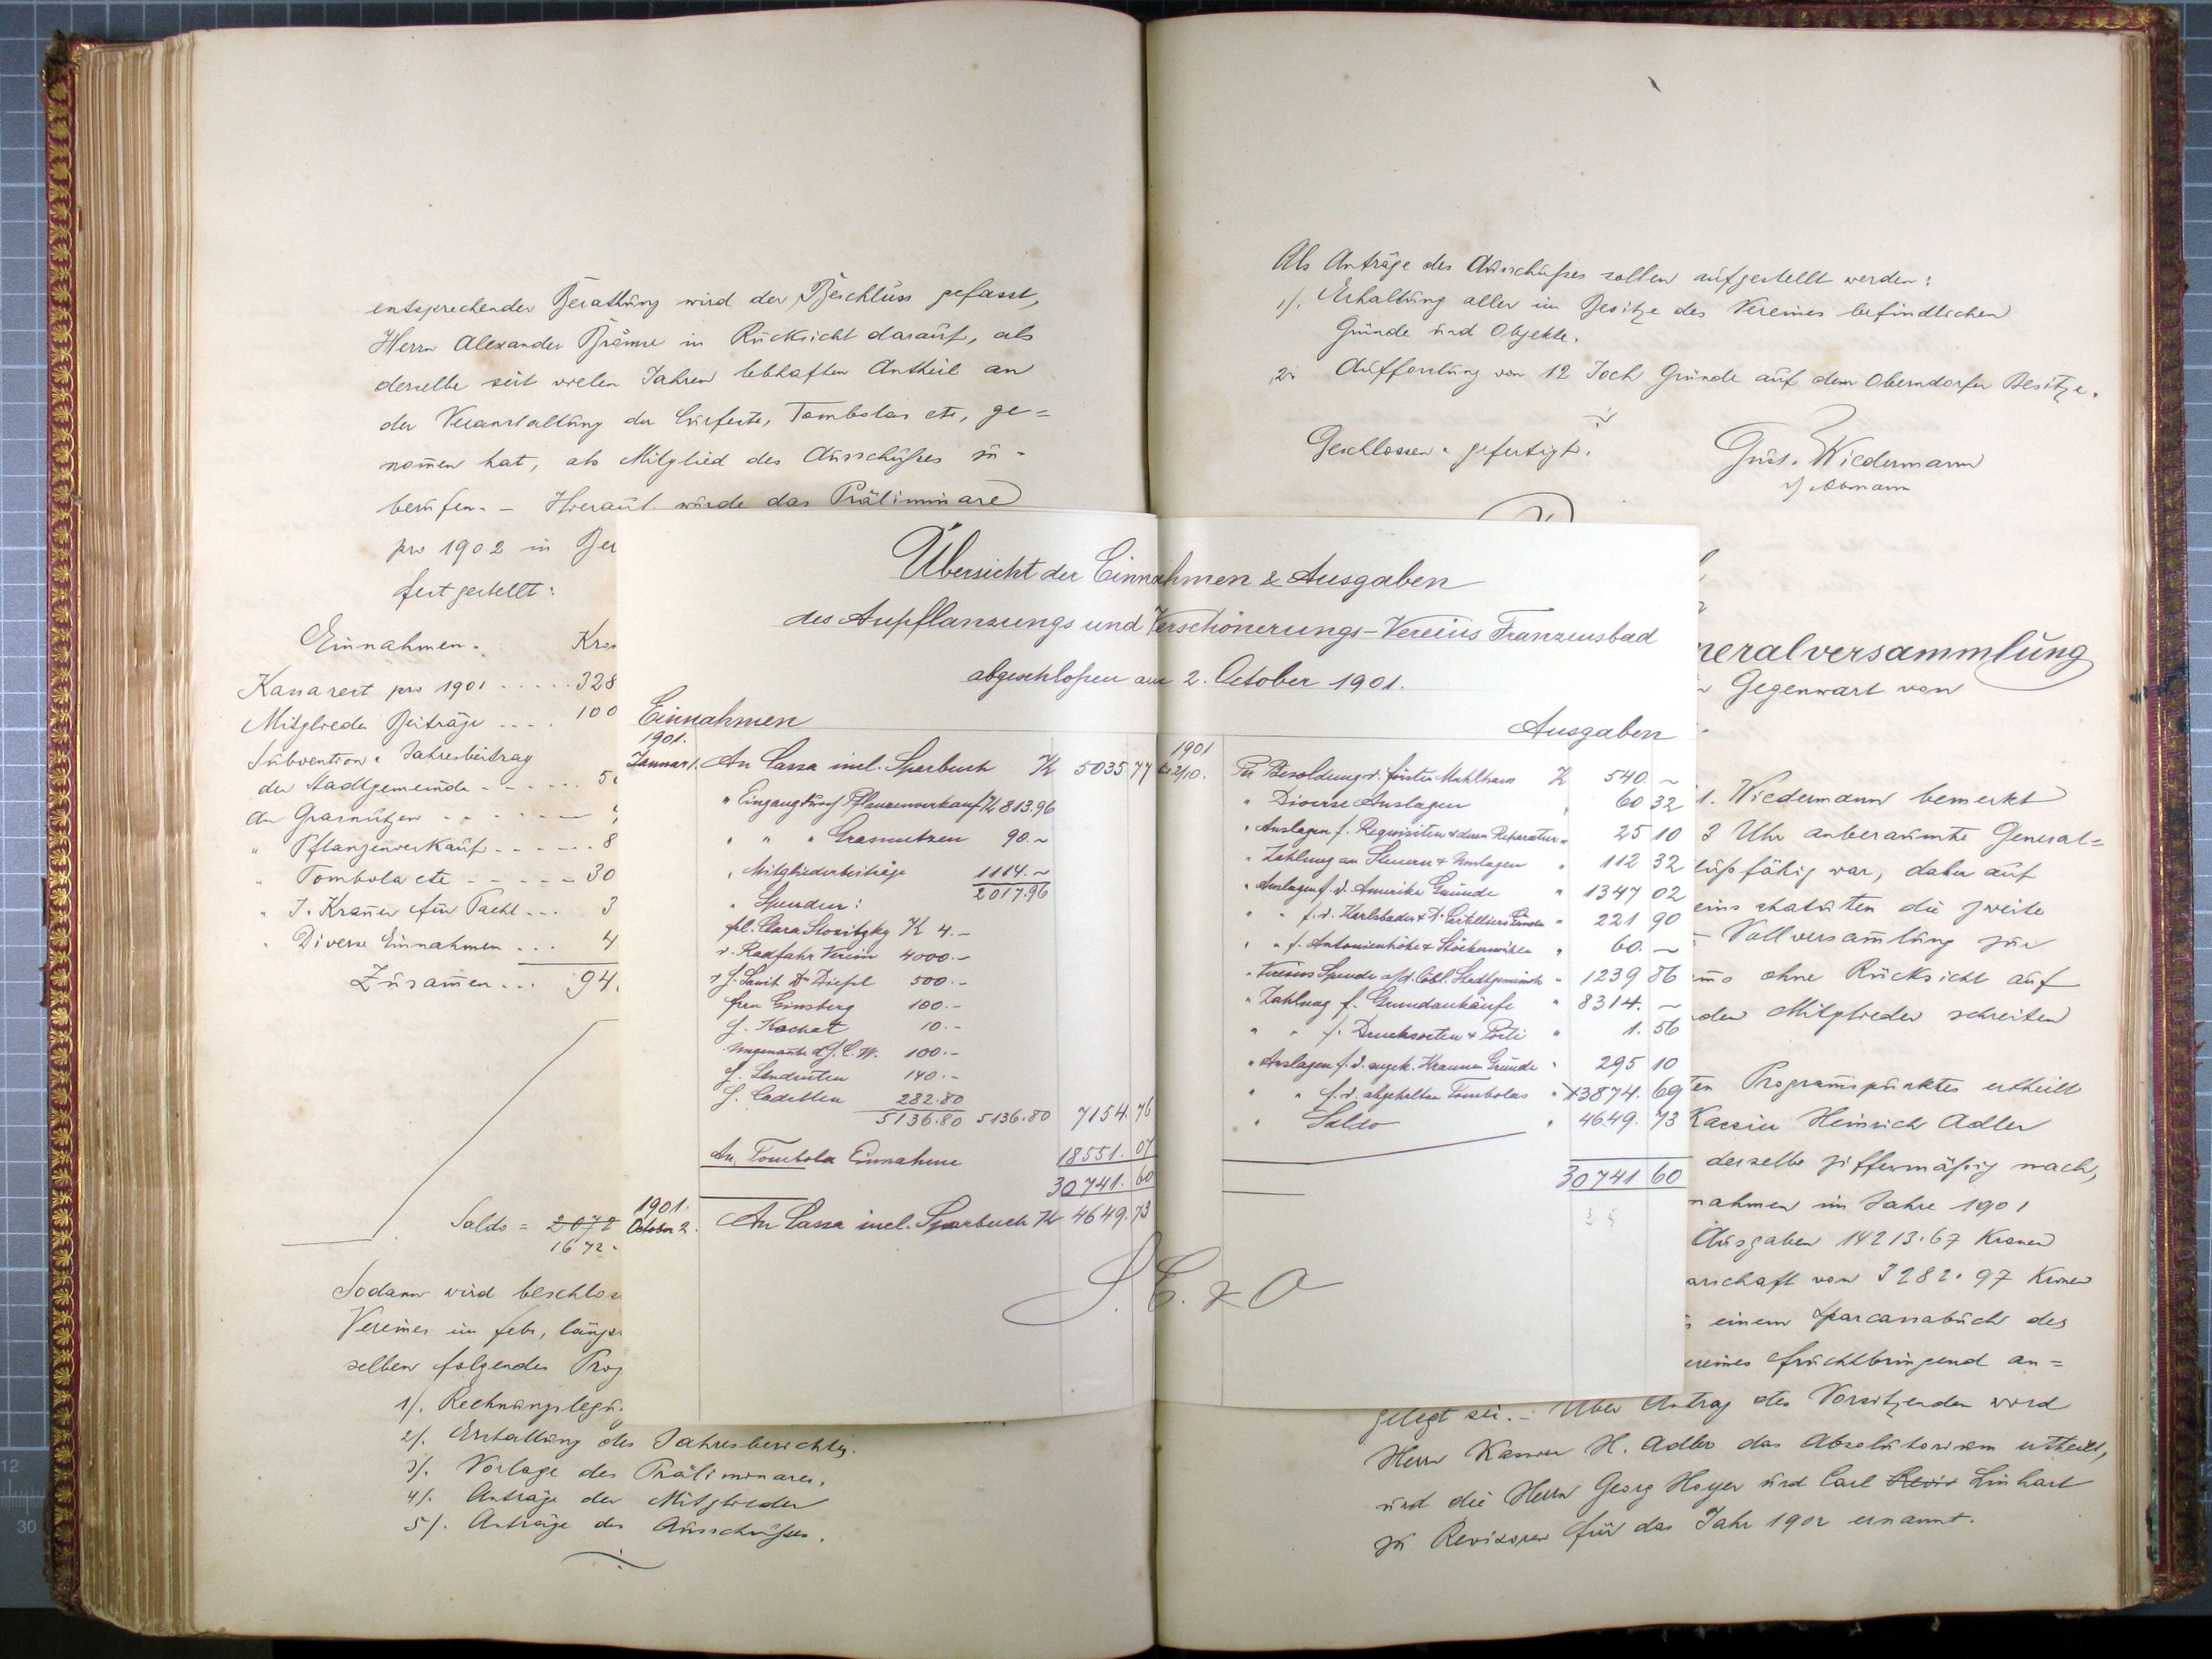 entsprechender Berathung wird der Beschluss gefasst,
Herrn Alexander in Rücksicht darauf, als
derselbe seit vielen Jahren lebhaften Antheil an
der Veranstaltung der Curfeste, Tombolas etc, ge=
nom̄en hat, als Mitglied des Ausschußes zu
berufen. – Hierauf wurde das Präliminare
pro 1902 in Ber
festgestellt:
Einnahmen. Kro
Kassarest pro 1901 ..... 328
Mitglieder Beiträge .... 100
Subvention u. Jahresbeitrag
der Stadtgemeinde ----- 5
An Grasnutzen ------
" Pflanzenverkauf ----- 8
" Tombola etc ----- 30
" J. Krauer für Pacht ... 3
" Diverse Einnahmen ... 4
Zusam̄en... 94
Saldo = 2072
1672.
Sodann wird beschlos
Vereines im feb, längs
selben folgendes Prog
1/. Rechnungslegu
2/. Erstattung des Jahresberichtes.
3/. Vorlage des Präliminares.
4/. Anträge der Mitglieder
5/. Anträge des Ausschußes.
Übersicht der Einnahmen & Ausgaben
des Anpflanzungs und Verschönerungs-Vereins Franzensbad
abgeschloßen am 2. October 1901.
Einnahmen
1901.
Januar 1. An Cassa incl. Sparbuch K 5035 77
" Eingang durch Pflanzenverkauf K 813.96
" " " Grasnutzen 90.~
" Mitgliederbeiträge 1114.~
2017.96
" Spenden:
frl. Clara Stositzky K 4.-
v. Radfahr Verein 4000.-
v. H. Sanit Dr Diessl 500.-
frau Ginsberg 100.-
H. Kochat 10.-
Ungenannt d. H. C. W. 100.-
H. 140.-
H. 282.80
5136.80 5136.80 7154.76
An Tombola Einnahme 18551.07
30741.60
1901.
October 2. An Cassa incl. Sparbuch K 4649.73
S. E. & O
Ausgaben
1901
bis 2/10. Für Besoldung d. förster Mahlhans K 540.~
" Diverse Auslagen " 60 32
" Auslagen f. Requisiten & deren Reparatur " 25 10
" Zahlung an Steuern & Umlagen " 112 32
" Auslagen f. d. Amerika Gründe " 1347 02
" " f. d. Karlsbader & Gründe " 221 90
" " f. Antonienhöhe & Stöckermühle " 60.~
" Vereins Spende a/d. löbl. Stadtgemeinde " 1239 86
" Zahlung f. Grundankäufe " 8314.~
" " f. Drucksorten & Porti " 1.56
" Auslagen f. d. angek. Krauer Gründe " 295 10
" " f. d. abgehalten Tombolas " 13874.69
" Saldo " 4649.73
30741 60
Als Anträge des Ausschußes sollen aufgestellt werden:
1/. Erhaltung aller im Besitze des Vereines befindlichen
Gründe und Objekte.
2. Aufforstung von 12 Joch Gründe auf dem Oberndorfer Besitze.
Geschlossen u. gefertigt.
Gust. Wiedermann
Obmann
neralversammlung
Gegenwart von
Wiedermann bemerkt
3 Uhr anberaumte General=
lußfähig war, daher auf
eins statuten die zweite
Vollversam̄lung zur
ohne Rücksicht auf
den Mitglieder schreiten
ten Programspunktes ertheilt
Kassier Heinrich Adler
derselbe ziffermäßig nach,
nahmen im Jahre 1901
Ausgaben 14213.67 Kronen
arschaft von 3282.97 Kronen
einem Sparcassabuch des
ereines fruchtbringend an=
gelegt sei. – Über Antrag des Vorsitzenden wird
Herr Kassier H. Adler das Absolutorium ertheilt,
und die Herrn Georg Hoyer und Carl Linhart
zu Revisoren für das Jahr 1902 ernannt.